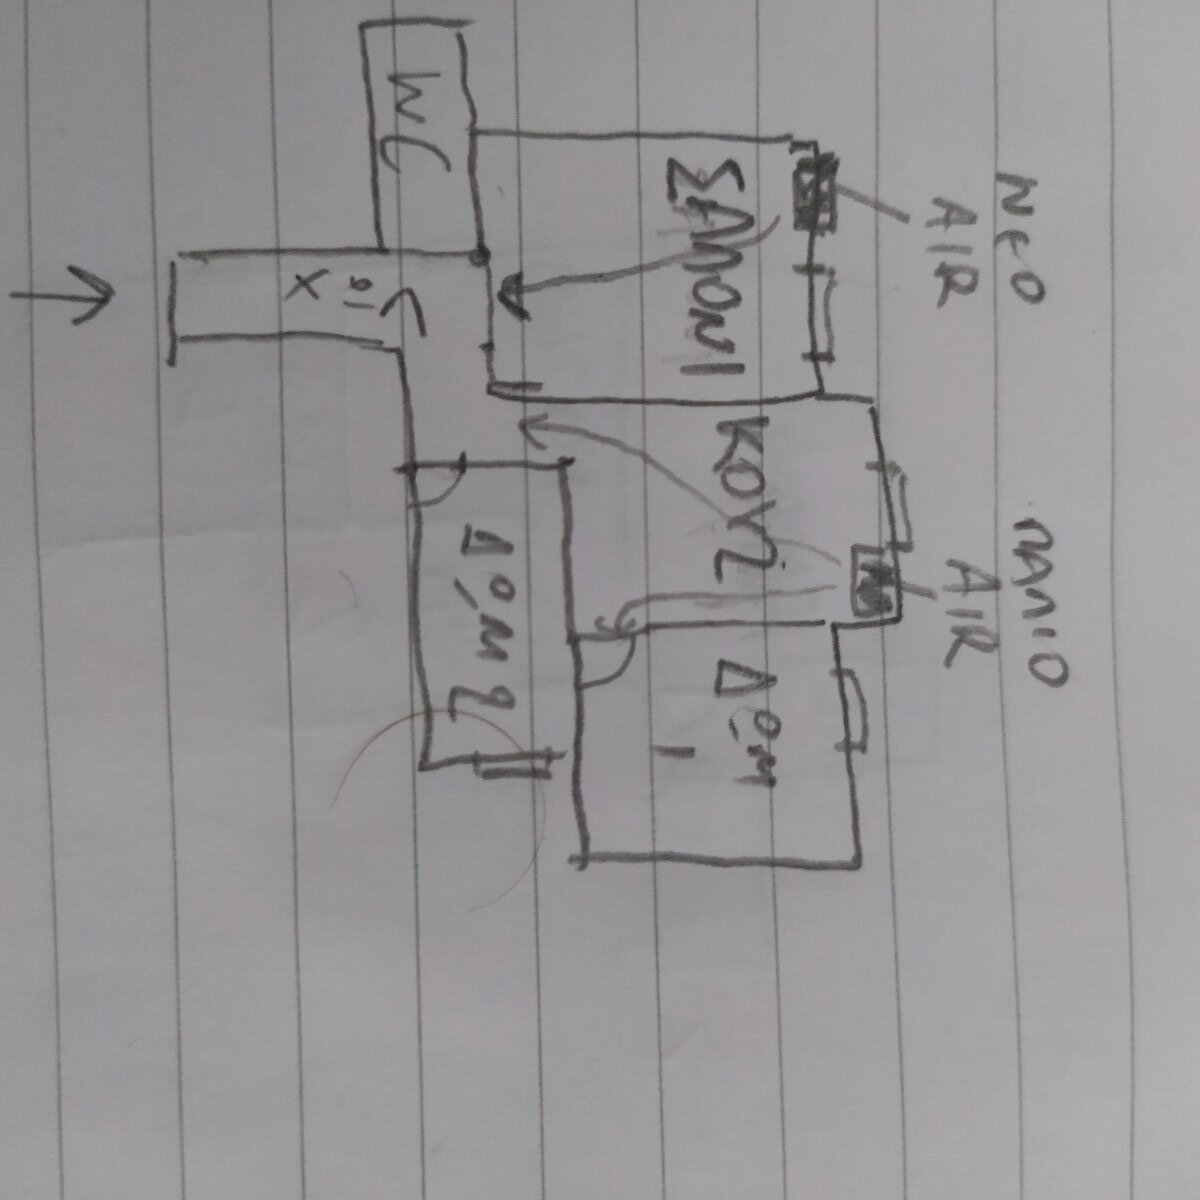 ΝΕΟ
AIR
ΠΑΛΙΟ
AIR
ΣΑΛΟΝΙ
ΚΟΥΖ
ΔΩΜ
1
ΔΩΜ 2
WC
ΧΩΛ